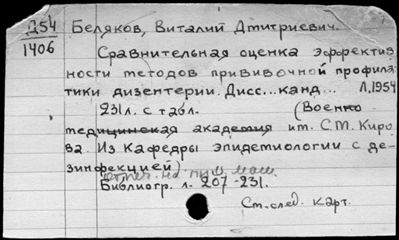 Д54 Беляков, Виталий Дмитриевич.
1406
Сравнительная оценка эффектив
ности методов прививочной профила
тики дизентерии. Дисс...канд... Л.,1954
231л. с таб л. (Военно
медицинская академия им. С.М. Киро
ва. Из Кафедры эпидемиологии с де-
зинфекцией)
отпеч. на пиш. маш.
Библиогр. л. 207-231.
См. след. карт.